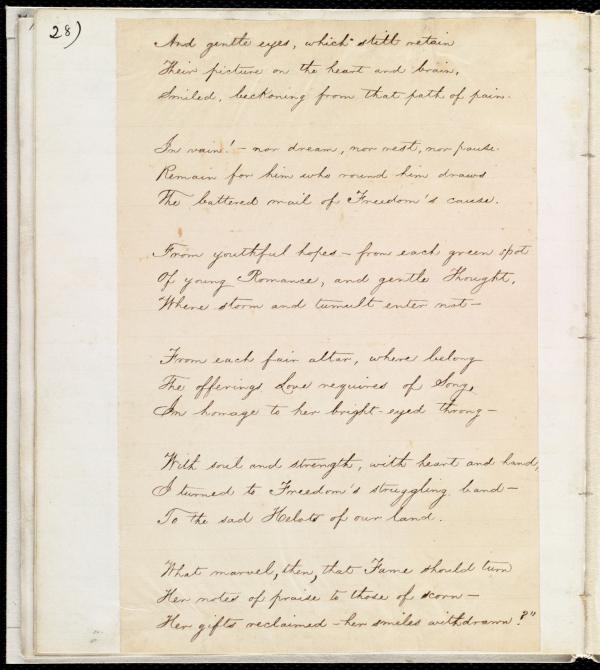 28)
And gentle eyes, which still retain
Their picture on the heart and brain,
Smiled, beckoning from that path of pain.
In vain! – nor dream, nor rest, nor pause
Remain for him who round him draws
The battered mail of Freedom's cause.
From youthful hopes – from each green spot
Of young Romance, and gentle Thought,
Where storm and tumult enter not –
From each fair altar, where belong
The offerings Love requires of Song,
In homage to her bright-eyed throng –
With soul and strength, with heart and hand,
I turned to Freedom's struggling band –
To the sad Helots of our land.
What marvel, then, that Fame should turn
Her notes of praise to those of scorn –
Her gifts reclaimed – her smiles withdrawn?"